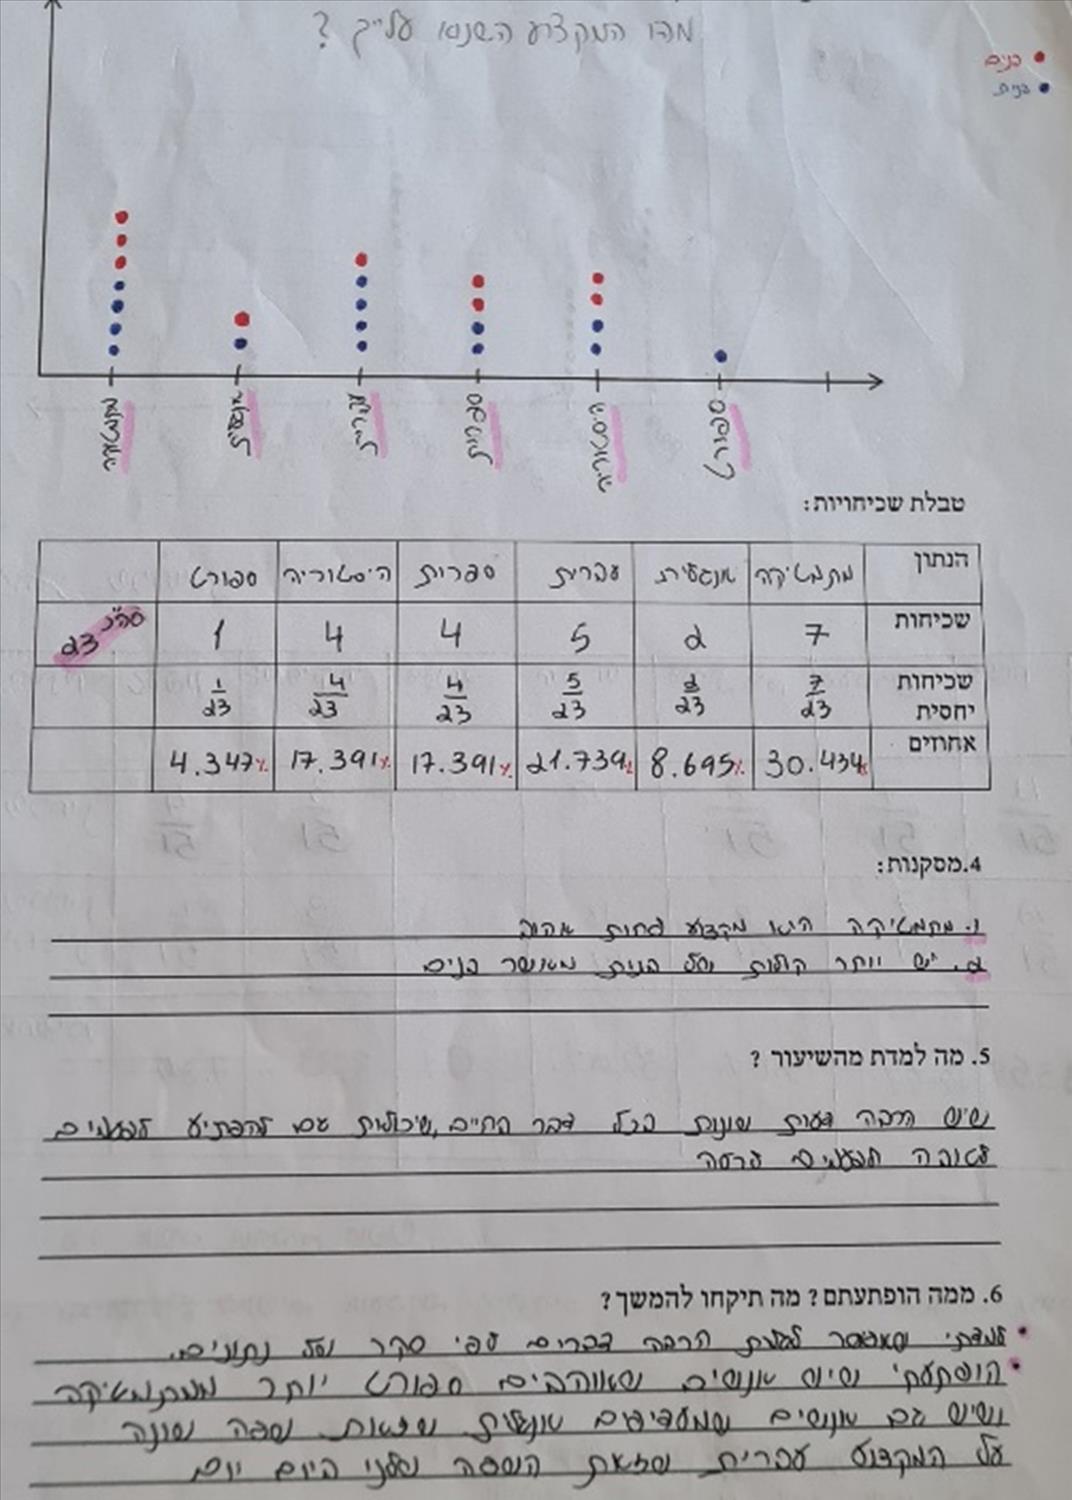 מהו המקצוע השנוא עלייך ?
בנים
בנות
מתמטיקה
אנגלית
עברית
ספרות
היסטוריה
ספורט
טבלת שכיחויות:
הנתון מתמטיקה אנגלית עברית ספרות היסטוריה ספורט
שכיחות 7 2 5 4 4 1 סה"כ 23
שכיחות יחסית 7/23 2/23 5/23 4/23 4/23 1/23
אחוזים 30.434% 8.695% 21.739% 17.391% 17.391% 4.347%
4.מסקנות:
1. מתמטיקה היא מקצוע פחות אהוב
2. יש יותר קולות של בנות מאשר בנים
5. מה למדת מהשיעור ?
שיש הרבה דעות שונות בכל דבר בחיים, שיכולות גם להפתיע לפעמים
לטובה ולפעמים לרעה
6. ממה הופתעתם? מה תיקחו להמשך?
למדתי שאפשר לגלות הרבה דברים עפ״י סקר ושל נתונים.
הופתעתי שיש אנשים שאוהבים ספורט יותר ממתמטיקה
ושיש גם אנשים שמעדיפים אנגלית שזאת שפה שונה
על המקצוע עברית שזאת השפה שלנו היום יום